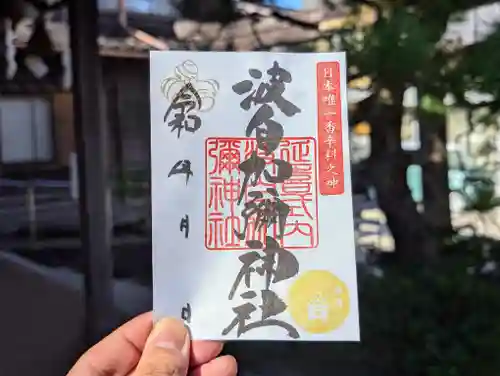 日本唯一香辛料之神
波自加彌神社
延喜式内
波自加
彌神社
令和 年 月 日